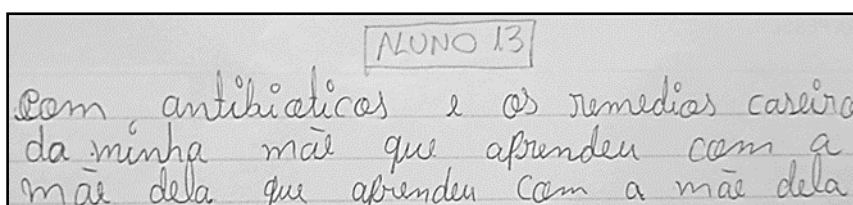 ALUNO 13
com antibioticos e os remedios caseiro
da minha mãe que aprendeu com a
mãe dela que aprendeu com a mãe dela